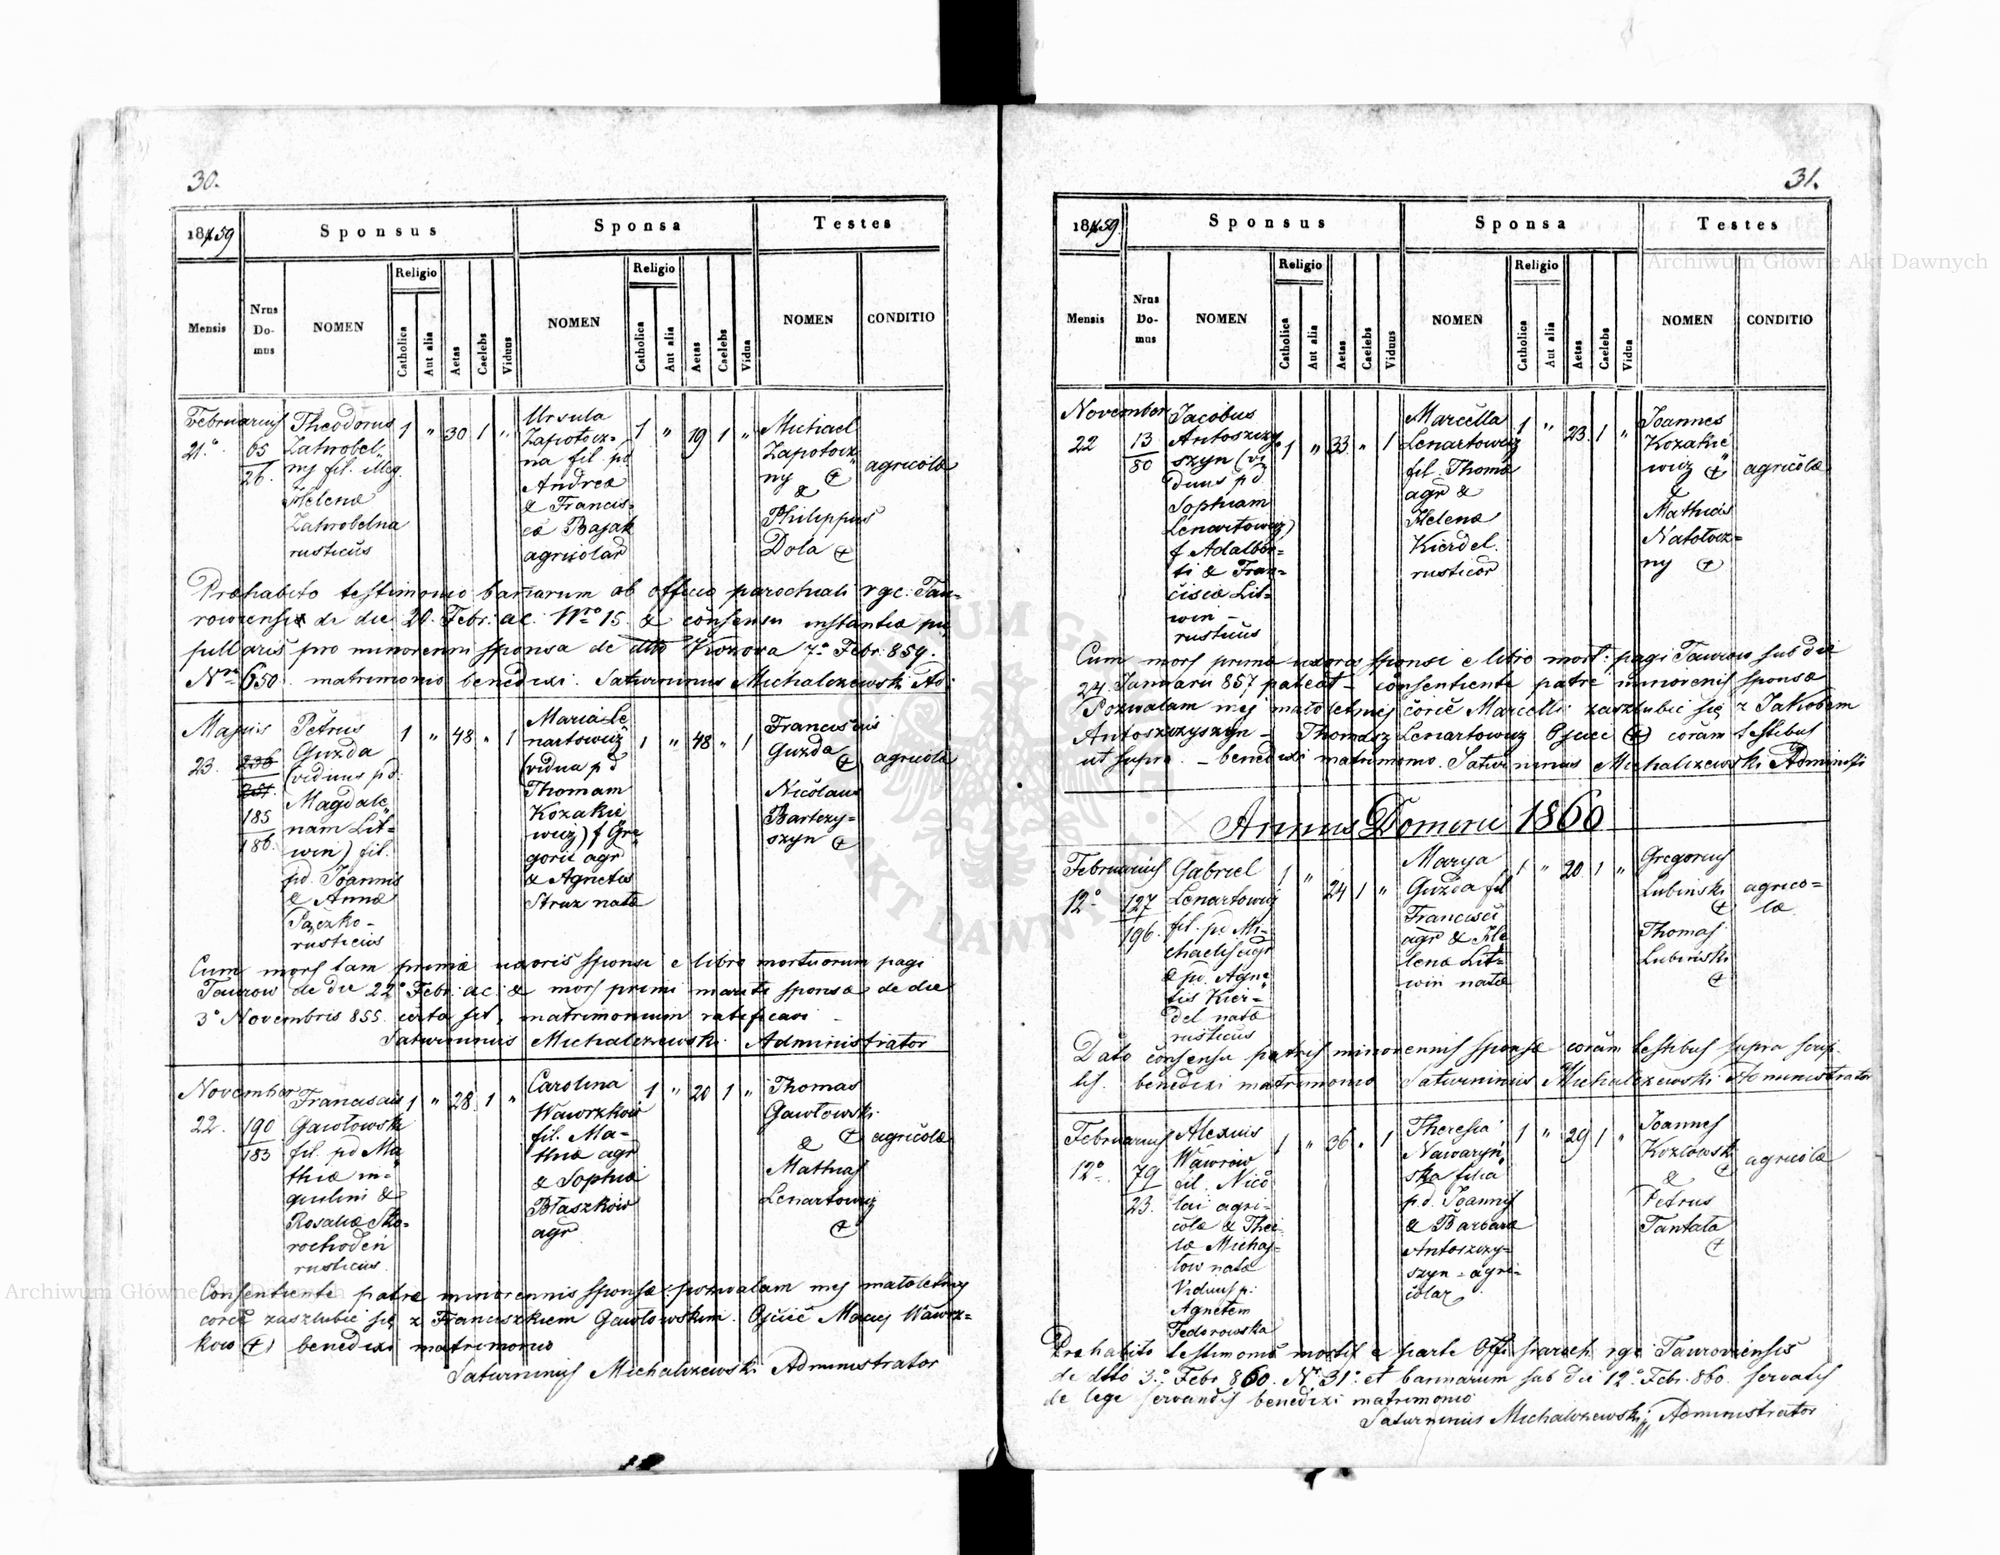 30.
1859
Sponsus
Sponsa
Testes
Religio
Religio
Mensis
Nrus Do-mus
NOMEN
Catholica
Aut alia
Aetas
Caelebs
Viduus
NOMEN
Catholica
Aut alia
Aetas
Caelebs
Vidua
NOMEN
CONDITIO
Februarius
21.
65
26.
Theodorus
Zatwobel-
ny fil. illeg.
Helenæ
Zatwobelna
rusticus
1 " 30 1 "
Ursula
Zapotocz-
na fil. pd
Andreæ
& Francis-
cæ Bajak
agricolar
1 " 19 1 "
Michael
Zapotocz
ny
&
Philippus
Dola
agricolæ
Præhabito testimonio bannarum ab officio parochiali rgc: Tau-
rowiensi de die 20. Febr. ac. Nro 15. & consensu instantiæ pu
pillaris pro minorenni sponsa de dtto Kozowa 7. Febr. 859.
Nro 650. matrimonio benedixi. Saturninus Michalczewski Ad:
Majus
23.
185
186.
Petrus
Guzda
(viduus pd:
Magdale
nam Lit-
win) fil.
pd. Joannis
& Annæ
Pączko-
rusticus
1 " 48 " 1
Maria Le
nartowicz
(vidua pd
Thomam
Kozakie
wicz) f Gre
gorii agr
& Agnetis
Struz natæ
1 " 48 " 1
Franciscus
Guzda
Nicolaus
Bartczy-
szyn
agricolæ
Cum mors tam primæ uxoris sponsi e libro mortuorum pagi
Taurow de die 22 Febr. ac. & mors primi mariti sponsæ de die
3 Novembris 855. certa sit, matrimonium ratificavi -
Saturninus Michalczewski Administrator
November
22.
190
183
Franciscus
Gawłowski
fil. pd Ma
thiæ in-
quilini &
Rosaliæ Sko-
rochodeń
rusticus.
1 " 28 1 "
Carolina
Wawrzków
fil. Ma-
thiæ agr
& Sophiæ
Błaszków
agr
1 " 20 1 "
Thomas
Gawłowski
&
Mathias
Lenartowicz
agricolæ
Consentiente patre minorennis sponsæ: pozwalam mej małoletniej
corce zaszlubić się z Franciszkiem Gawłowskim. Ojciec Maciej Wawrz-
kow benedixi matrimonio
Saturninus Michalczewski Administrator
31.
1859.
Sponsus
Sponsa
Testes
Religio
Religio
Mensis
Nrus Do-mus
NOMEN
Catholica
Aut alia
Aetas
Caelebs
Viduus
NOMEN
Catholica
Aut alia
Aetas
Caelebs
Vidua
NOMEN
CONDITIO
November
22
13
80
Jacobus
Antoszczy
szyn (vi
duus pd
Sophiam
Lenartowicz)
f Adalber-
ti & Fran-
cisiæ Lit-
win -
rusticus
1 " 33 " 1
Marcella
Lenartowicz
fil. Thomæ
agr &
Helenæ
Kierdel.
rusticor
1 " 23. 1 "
Joannes
Kozakie
wicz
&
Mathias
Natotocz-
ny
agricolæ
Cum mors primæ uxoris sponsi e libro mort: pagi Taurow sub die
24. Januarii 857 pateat - consentiente patre minorenis sponsæ
Pozwalam mej małoletniej corce Marcelli zaszlubić się z Jakobem
Antoszczyszyn - Thomasz Lenartowicz Ojciec coram testibus
ut supra. - benedixi matrimonio. Saturninus Michalczewski Administr
Annus Domini 1860
Februarius
12.
127
196.
Gabriel
Lenartowicz
fil. pd Mi-
chaelis agr
& pd. Agne
tis Kier-
del natæ
rusticus
1 " 24 1 "
Marya
Guzda fil
Francisci
agr & He
lenæ Lit-
win natæ
1 " 20 1 "
Gregorius
Lubinski
Thomas
Lubinski
agrico-
læ
Dato consensu patris minorennis sponsæ coram testibus supra scrip-
tis. benedixi matrimonio Saturninus Michalczewski Administrator
Februarius
12.
79
23.
Alexius
Wawrow
fil. Nico
lai agri-
colæ & Thec
læ Michaj-
łow natæ
Viduus p:
Agnetem
Fedorowska
1 " 36 " 1
Theresia
Nawaryń
ska filia
pd. Joannis
& Barbaræ
Antoszczy-
szyn - agri-
colar
1 " 29 1 "
Joannes
Kozłowski
&
Petrus
Tantała
agricolæ
Præhabito testimonio mortis e parte Offi paroch rgc Tauroviensis
de dtto 3. Febr 860. N 31. et bannarum sub die 12. Febr. 860. servatis
de lege servandis benedixi matrimonio
Saturninus Michalczewski Administrator
Archiwum Główne Akt Dawnych